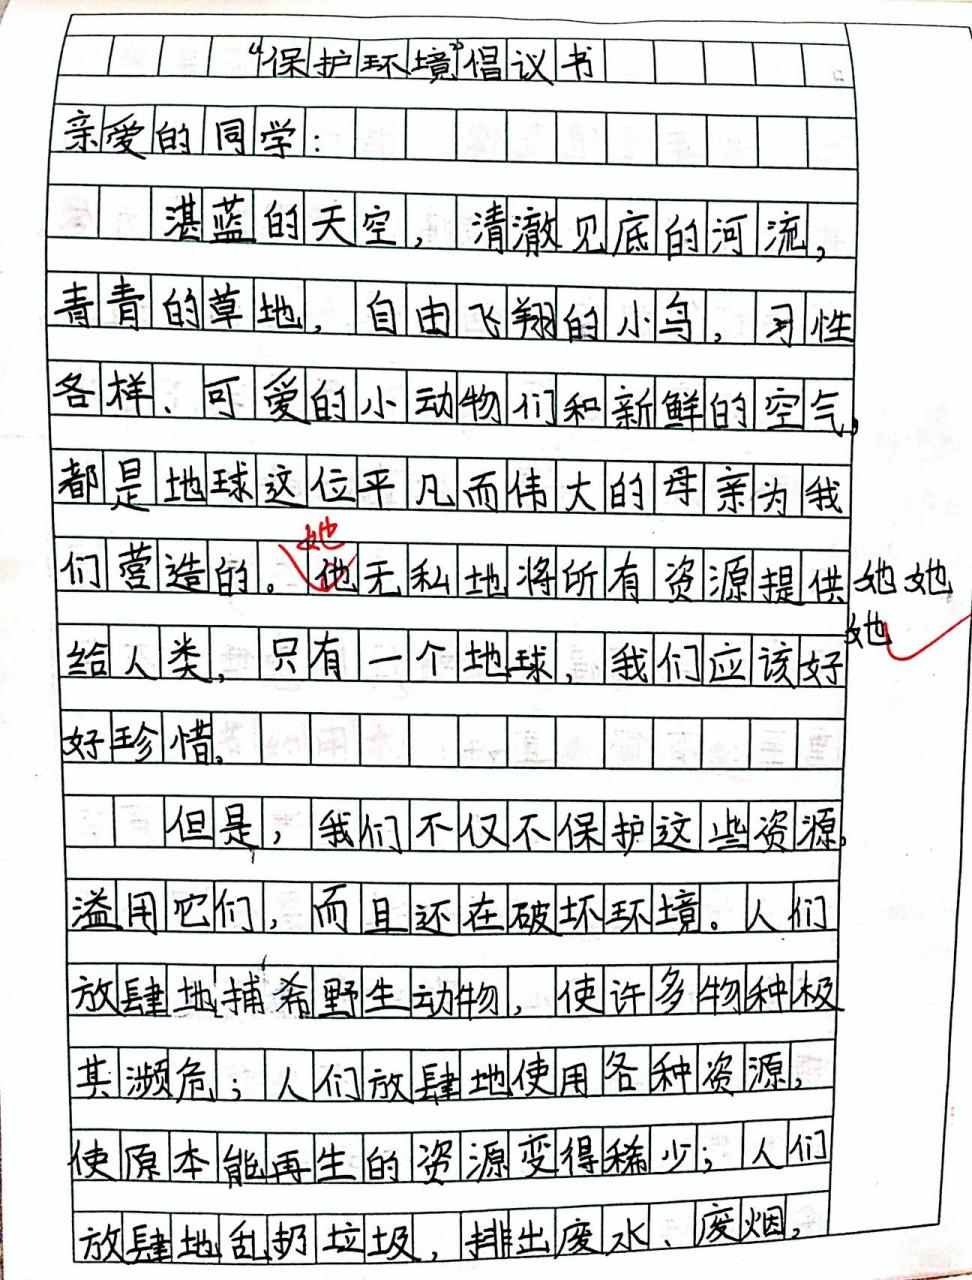 “保护环境”倡议书
亲爱的同学：
湛蓝的天空，清澈见底的河流，
青青的草地，自由飞翔的小鸟，习性
各样、可爱的小动物们和新鲜的空气，
都是地球这位平凡而伟大的母亲为我
她
们营造的。他无私地将所有资源提供
她她
她
给人类，只有一个地球，我们应该好
好珍惜。
但是，我们不仅不保护这些资源，
滥用它们，而且还在破坏环境。人们
放肆地捕希野生动物，使许多物种极
其濒危；人们放肆地使用各种资源，
使原本能再生的资源变得稀少；人们
放肆地乱扔垃圾，排出废水、废烟，